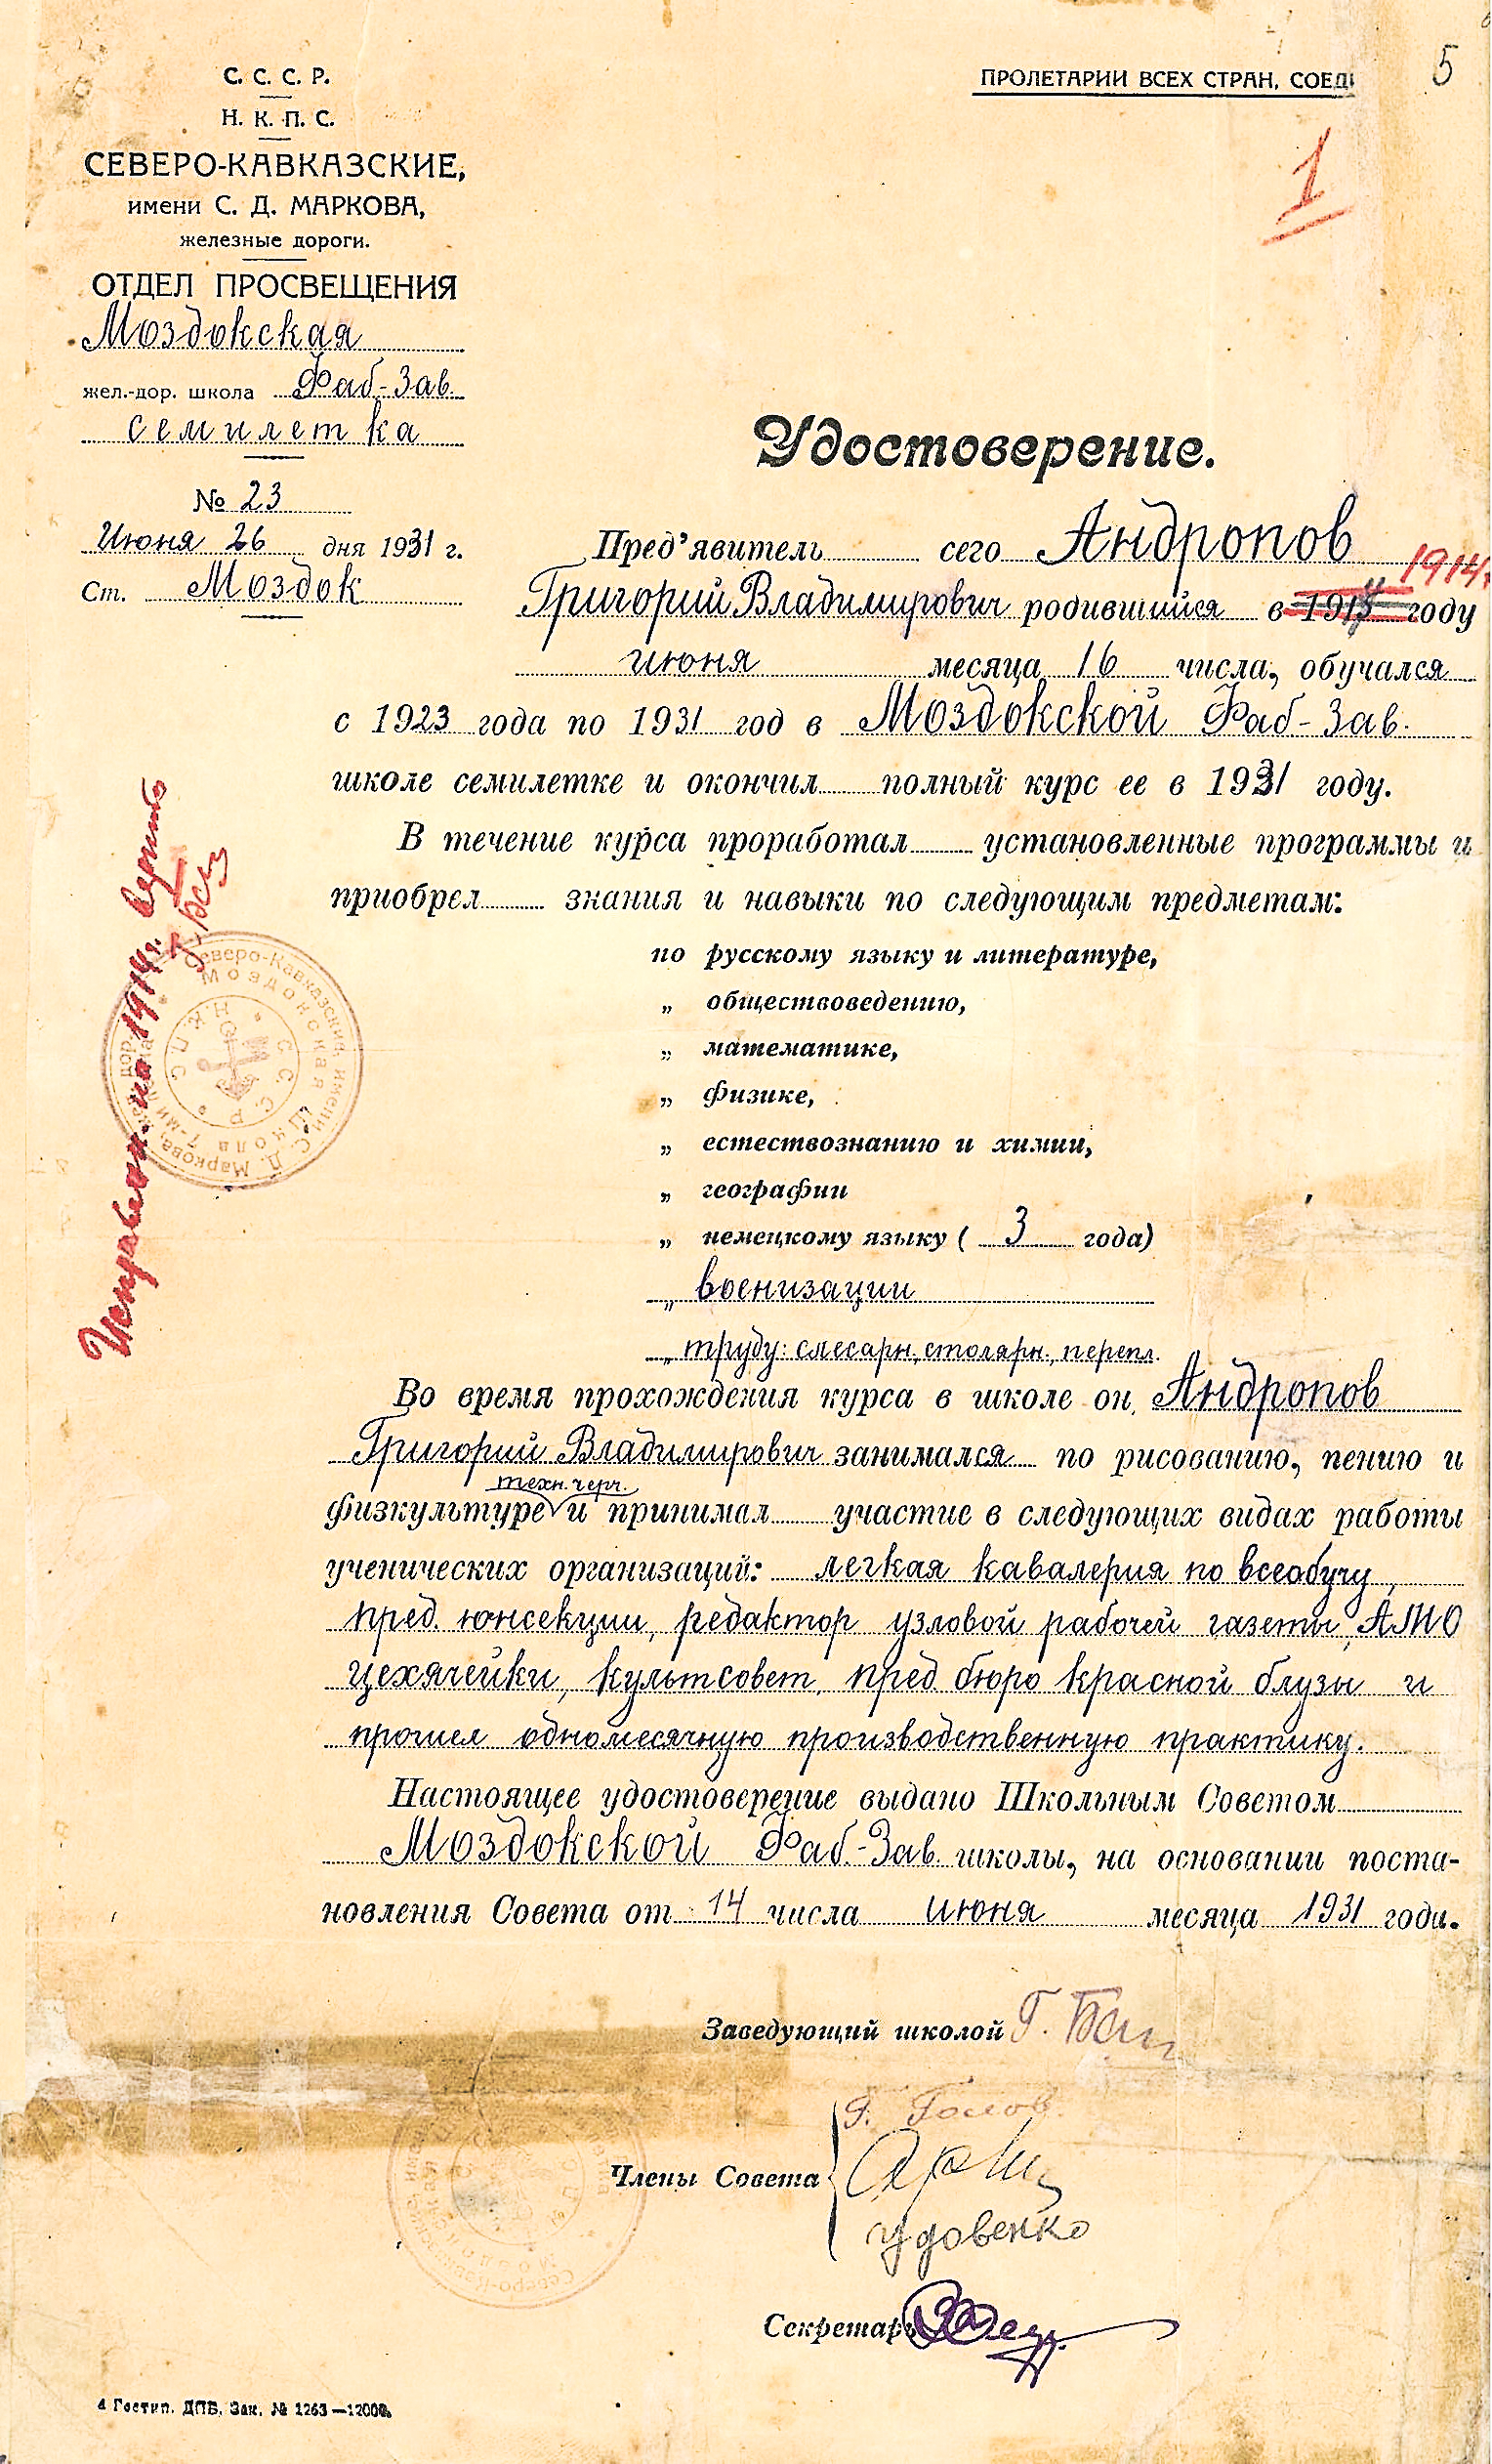 С. С. С. Р.
Н. К. П. С.
СЕВЕРО-КАВКАЗСКИЕ,
имени С. Д. МАРКОВА,
железные дороги.
ОТДЕЛ ПРОСВЕЩЕНИЯ
Моздокская
жел.-дор. школа Фаб-Зав.
семилетка
№ 23
Июня 26 дня 1931 г.
Ст. Моздок
ПРОЛЕТАРИИ ВСЕХ СТРАН, СОЕД
5
1
Удостоверение.
Пред'явитель сего Андропов
1914г.
Григорий Владимирович родившийся в году
июня месяца 16 числа, обучался
с 1923 года по 1931 год в Моздокской Фаб-Зав.
школе семилетке и окончил полный курс ее в 1931 году.
В течение курса проработал установленные программы и
приобрел знания и навыки по следующим предметам:
по русскому языку и литературе,
„ обществоведению,
„ математике,
„ физике,
„ естествознанию и химии,
„ географии
„ немецкому языку ( 3 года)
„ военизации
„ труду: слесарн., столярн., перепл.
Во время прохождения курса в школе он, Андропов
Григорий Владимирович занимался по рисованию, пению и
техн. черч.
физкультуре и принимал участие в следующих видах работы
ученических организаций: легкая кавалерия по всеобучу,
пред. юнсекции, редактор узловой рабочей газеты, АПО
цехячейки, культсовет, пред. бюро красной блузы и
прошел одномесячную производственную практику.
Настоящее удостоверение выдано Школьным Советом
Моздокской Фаб.-Зав. школы, на основании поста-
новления Совета от 14 числа июня месяца 1931 года.
Исправлен. на 1914г. верить
Северо-Кавказские, имени С. Д. Маркова, жел. дор.
Моздокская школа 7-ми
С.С.С.Р. НКПС
Заведующий школой Г.
Члены Совета
Г. Голов.
Удовенко
Секретарь
4 Гостип. ДПБ, Зак. № 1263—12000.